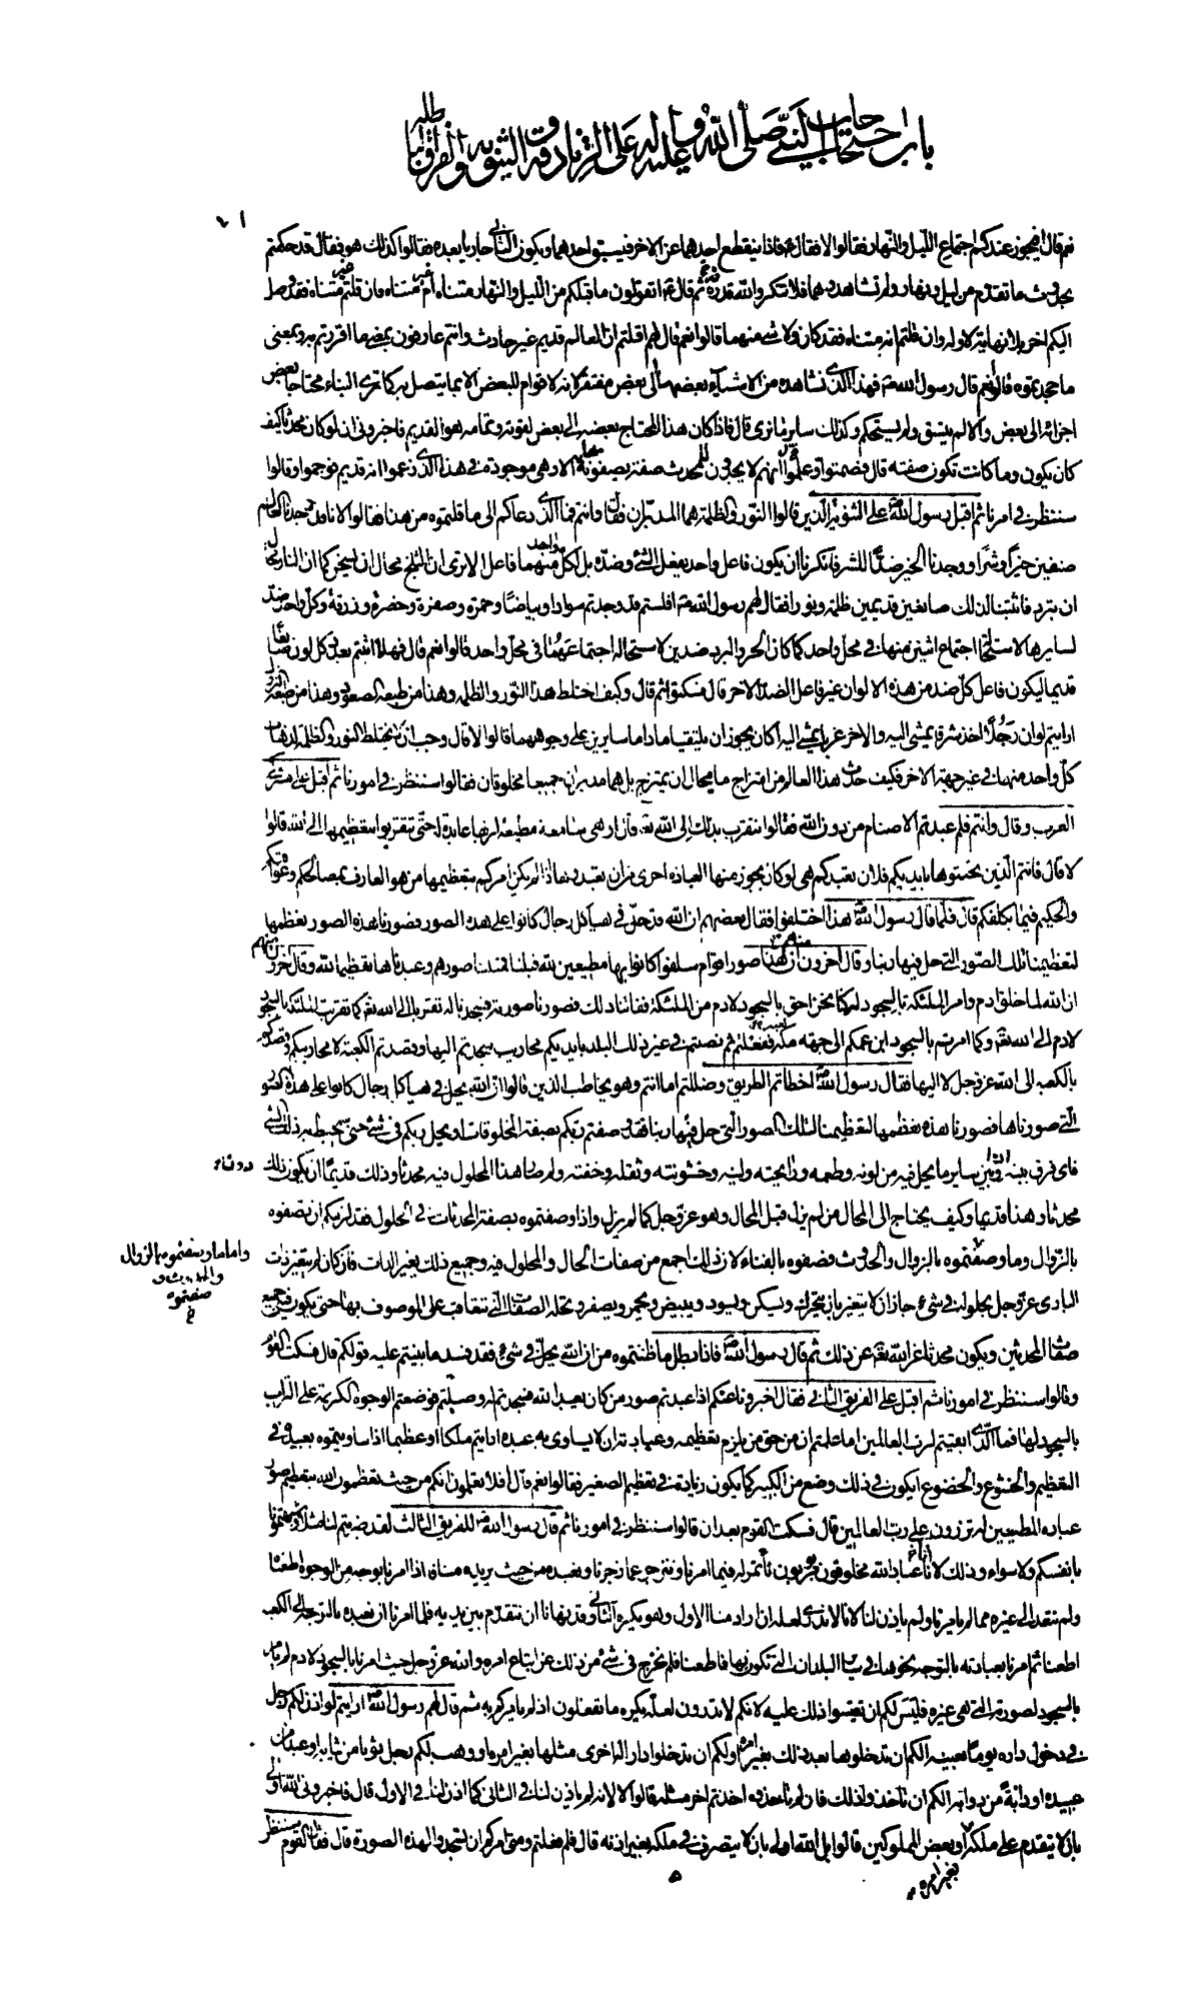 باب احتجاج النبي صلى الله عليه وآله على الزنادقة الثنوية والفرق الباطلة
٢١
نعم قال افيجوز عندكم اجتماع الليل والنهار فقالوا لا فقال فاذا ينقطع احدهما عن الاخر فيسبق احدهما ويكون الثاني جاريا بعده فقالوا كذلك هو فقال قد حكمتم
بحدوث ما تقدم من ليل ونهار ولم تشاهدوهما فلا تنكروا لله قدرة ثم قال اتقولون ما قبلكم من الليل والنهار متناه ام غير متناه فان قلتم غير متناه فقد وصل
اليكم اخر بلا نهاية لاوله وان قلتم انه متناه فقد كان ولا شئ منهما قالوا نعم قال لهم اقلتم ان العالم قديم غير حادث وانتم عارفون بمعنى ما اقررتم به وبمعنى
ما جحدتموه قالوا نعم قال رسول الله فهذا الذي نشاهده من الاشياء بعضها الى بعض مفتقر لانه لا قوام للبعض الا بما يتصل به كما ترى البناء محتاجا بعض
اجزائه الى بعض والا لم يتسق ولم يستحكم وكذلك ساير ما نرى قال فاذا كان هذا المحتاج بعضه الى بعض لقوته وتمامه هو القديم فاخبروني ان لو كان محدثا كيف
كان يكون وما ذا كانت تكون صفته قال فبهتوا وعلموا انهم لا يجدون للمحدث صفة يصفونه بها الا وهي موجودة في هذا الذي زعموا انه قديم فوجموا وقالوا
سننظر في امرنا ثم اقبل رسول الله على الثنوية الذين قالوا النور والظلمة هما المدبران فقال وانتم فما الذي دعاكم الى ما قلتموه من هذا فقالوا لانا وجدنا العالم
صنفين خيرا وشرا ووجدنا الخير ضدا للشر فانكرنا ان يكون فاعل واحد يفعل الشئ وضده بل لكل واحد منهما فاعل الا ترى ان الثلج محال ان يسخن كما ان النار محال
ان تبرد فاثبتنا لذلك صانعين قديمين ظلمة ونورا فقال لهم رسول الله افلستم قد وجدتم سوادا وبياضا وحمرة وصفرة وخضرة وزرقة وكل واحد ضد
لسايرها لاستحالة اجتماع اثنين منها في محل واحد كما كان الحر والبرد ضدين لاستحالة اجتماعهما في محل واحد قالوا نعم قال فهلا اثبتم بعدد كل لون صانعا
قديما ليكون فاعل كل ضد من هذه الالوان غير فاعل الضد الاخر قال فسكتوا ثم قال وكيف اختلط هذا النور والظلمة وهذا من طبعه الصعود وهذا من طبعه النزول
ارايتم لو ان رجلا اخذ شرقا يمشي اليه والاخر غربا يمشي اليه اكان يجوز ان يلتقيا ما داما سايرين على وجوههما قالوا لا قال وجب ان لا يختلط النور والظلمة لذهاب
كل واحد منهما في غير جهة الاخر فكيف حدث هذا العالم من امتزاج ما محال ان يمتزج بل هما مدبران جميعا مخلوقان فقالوا سننظر في امورنا ثم اقبل على مشركي
العرب وقال وانتم فلم عبدتم الاصنام من دون الله فقالوا نتقرب بذلك الى الله قال او هي سامعة مطيعة لربها عابدة له حتى تتقربوا بتعظيمها الى الله قالوا
لا قال فانتم الذين نحتموها بايديكم فلان تعبدكم هي لو كان يجوز منها العبادة احرى من ان تعبدوها اذا لم يكن امركم بتعظيمها من هو العارف بمصالحكم وعواقبكم
والحكيم فيما يكلفكم قال فلما قال رسول الله هذا اختلفوا فقال بعضهم ان الله قد حل في هياكل رجال كانوا على هذه الصور فصورنا هذه الصور نعظمها
لتعظيمنا تلك الصور التي حل فيها ربنا وقال آخرون منهم ان هذه صور اقوام سلفوا كانوا بها مطيعين لله قبلنا فمثلنا صورهم وعبدناها تعظيما لله وقال آخرون منهم
ان الله لما خلق ادم وامر الملئكة بالسجود له كنا نحن احق بالسجود لادم من الملئكة ففاتنا ذلك فصورنا صورته فسجدنا له تقربا الى الله كما تقربت الملئكة بالسجود
لادم الى الله وكما امرتم بالسجود بزعمكم الى جهة مكة ففعلتم ثم نصبتم في غير ذلك البلد بايديكم محاريب سجدتم اليها وقصدتم الكعبة لا محاريبكم وقصدكم
بالكعبة الى الله عز وجل لا اليها فقال رسول الله اخطاتم الطريق وضللتم اما انتم وهو يخاطب الذين قالوا ان الله يحل في هياكل رجال كانوا على هذه الصور
التي صورناها فصورنا هذه نعظمها لتعظيمنا لتلك الصور التي حل فيها ربنا فقد وصفتم ربكم بصفة المخلوقات او يحل ربكم في شئ حتى يحيط به ذلك الشئ
فاي فرق بينه اذا وبين ساير ما يحل فيه من لونه وطعمه ورائحته ولينه وخشونته وثقله وخفته ولم صار هذا المحلول فيه محدثا وذلك قديما دون ان يكون ذلك
محدثا وهذا قديما وكيف يحتاج الى المحال من لم يزل قبل المحال وهو عز وجل كما لم يزل واذا وصفتموه بصفة المحدثات في الحلول فقد لزمكم ان تصفوه
بالزوال وما وصفتموه بالزوال والحدوث فصفوه بالفناء لان ذلك اجمع من صفات الحال والمحلول فيه وجميع ذلك يغير الذات فان كان لم يتغير ذات
واما ما وصفتموه بالزوال
والحدوث و
صفتموه
البارئ عز وجل بحلوله في شئ جاز ان لا يتغير بان يتحرك ويسكن ويسود ويبيض ويحمر ويصفر وتحله الصفات التي تتعاقب على الموصوف بها حتى يكون فيه جميع
صفات المحدثين ويكون محدثا عز الله عن ذلك ثم قال رسول الله فاذا بطل ما ظننتموه من ان الله يحل في شئ فقد فسد ما بنيتم عليه قولكم قال فسكت القوم
وقالوا سننظر في امورنا ثم اقبل على الفريق الثاني فقال اخبرونا عنكم اذا عبدتم صور من كان يعبد الله فسجدتم له وصليتم فوضعتم الوجوه الكريمة على التراب
بالسجود لها فما الذي ابقيتم لرب العالمين اما علمتم ان من حق من يلزم تعظيمه وعبادته ان لا يساوى به عبده ارايتم ملكا او عظيما اذا ساويتموه بعبيده في
التعظيم والخشوع والخضوع ايكون في ذلك وضع من الكبير كما يكون زيادة في تعظيم الصغير فقالوا نعم قال افلا تعلمون انكم من حيث تعظمون الله بتعظيم صور
عباده المطيعين له تزرون على رب العالمين قال فسكت القوم بعد ان قالوا سننظر في امورنا ثم قال رسول الله للفريق الثالث لقد ضربتم لنا مثلا وشبهتمونا
بانفسكم ولا سواء وذلك لانا عباد الله مخلوقون مربوبون نأتمر له فيما امرنا وننزجر عما زجرنا ونعبده من حيث يريده منا فاذا امرنا بوجه من الوجوه اطعناه
ولم نتعد الى غيره مما لم يامرنا ولم ياذن لنا لانا لا ندري لعله ان اراد منا الاول وهو يكره الثاني وقد نهانا ان نتقدم بين يديه فلما امرنا ان نعبده بالتوجه الى الكعبة
اطعنا ثم امرنا بعبادته بالتوجه نحوها في ساير البلدان التي تكون بها فاطعنا فلم نخرج في شئ من ذلك عن اتباع امره والله عز وجل حيث امرنا بالسجود لادم لم يامر
بالسجود لصورته التي هي غيره فليس لكم ان تقيسوا ذلك عليه لانكم لا تدرون لعله يكره ما تفعلون اذ لم يامركم به ثم قال لهم رسول الله ارايتم لو اذن لكم رجل
في دخول داره يوما بعينه الكم ان تدخلوها بعد ذلك بغير امره او لكم ان تدخلوا دارا له اخرى مثلها بغير امره او وهب لكم رجل ثوبا من ثيابه او عبدا من
عبيده او دابة من دوابه الكم ان تاخذوا ذلك فان لم تاخذوه اخذتم اخر مثله قالوا لا لانه لم ياذن لنا في الثاني كما اذن لنا في الاول قال فاخبروني الله اولى
بان لا يتقدم على ملكه او بعض المملوكين قالوا بل الله اولى بان لا يتصرف في ملكه بغير اذنه قال فلم فعلتم ومتى امركم ان تسجدوا لهذه الصورة قال فقال القوم سننظر
بغير امره